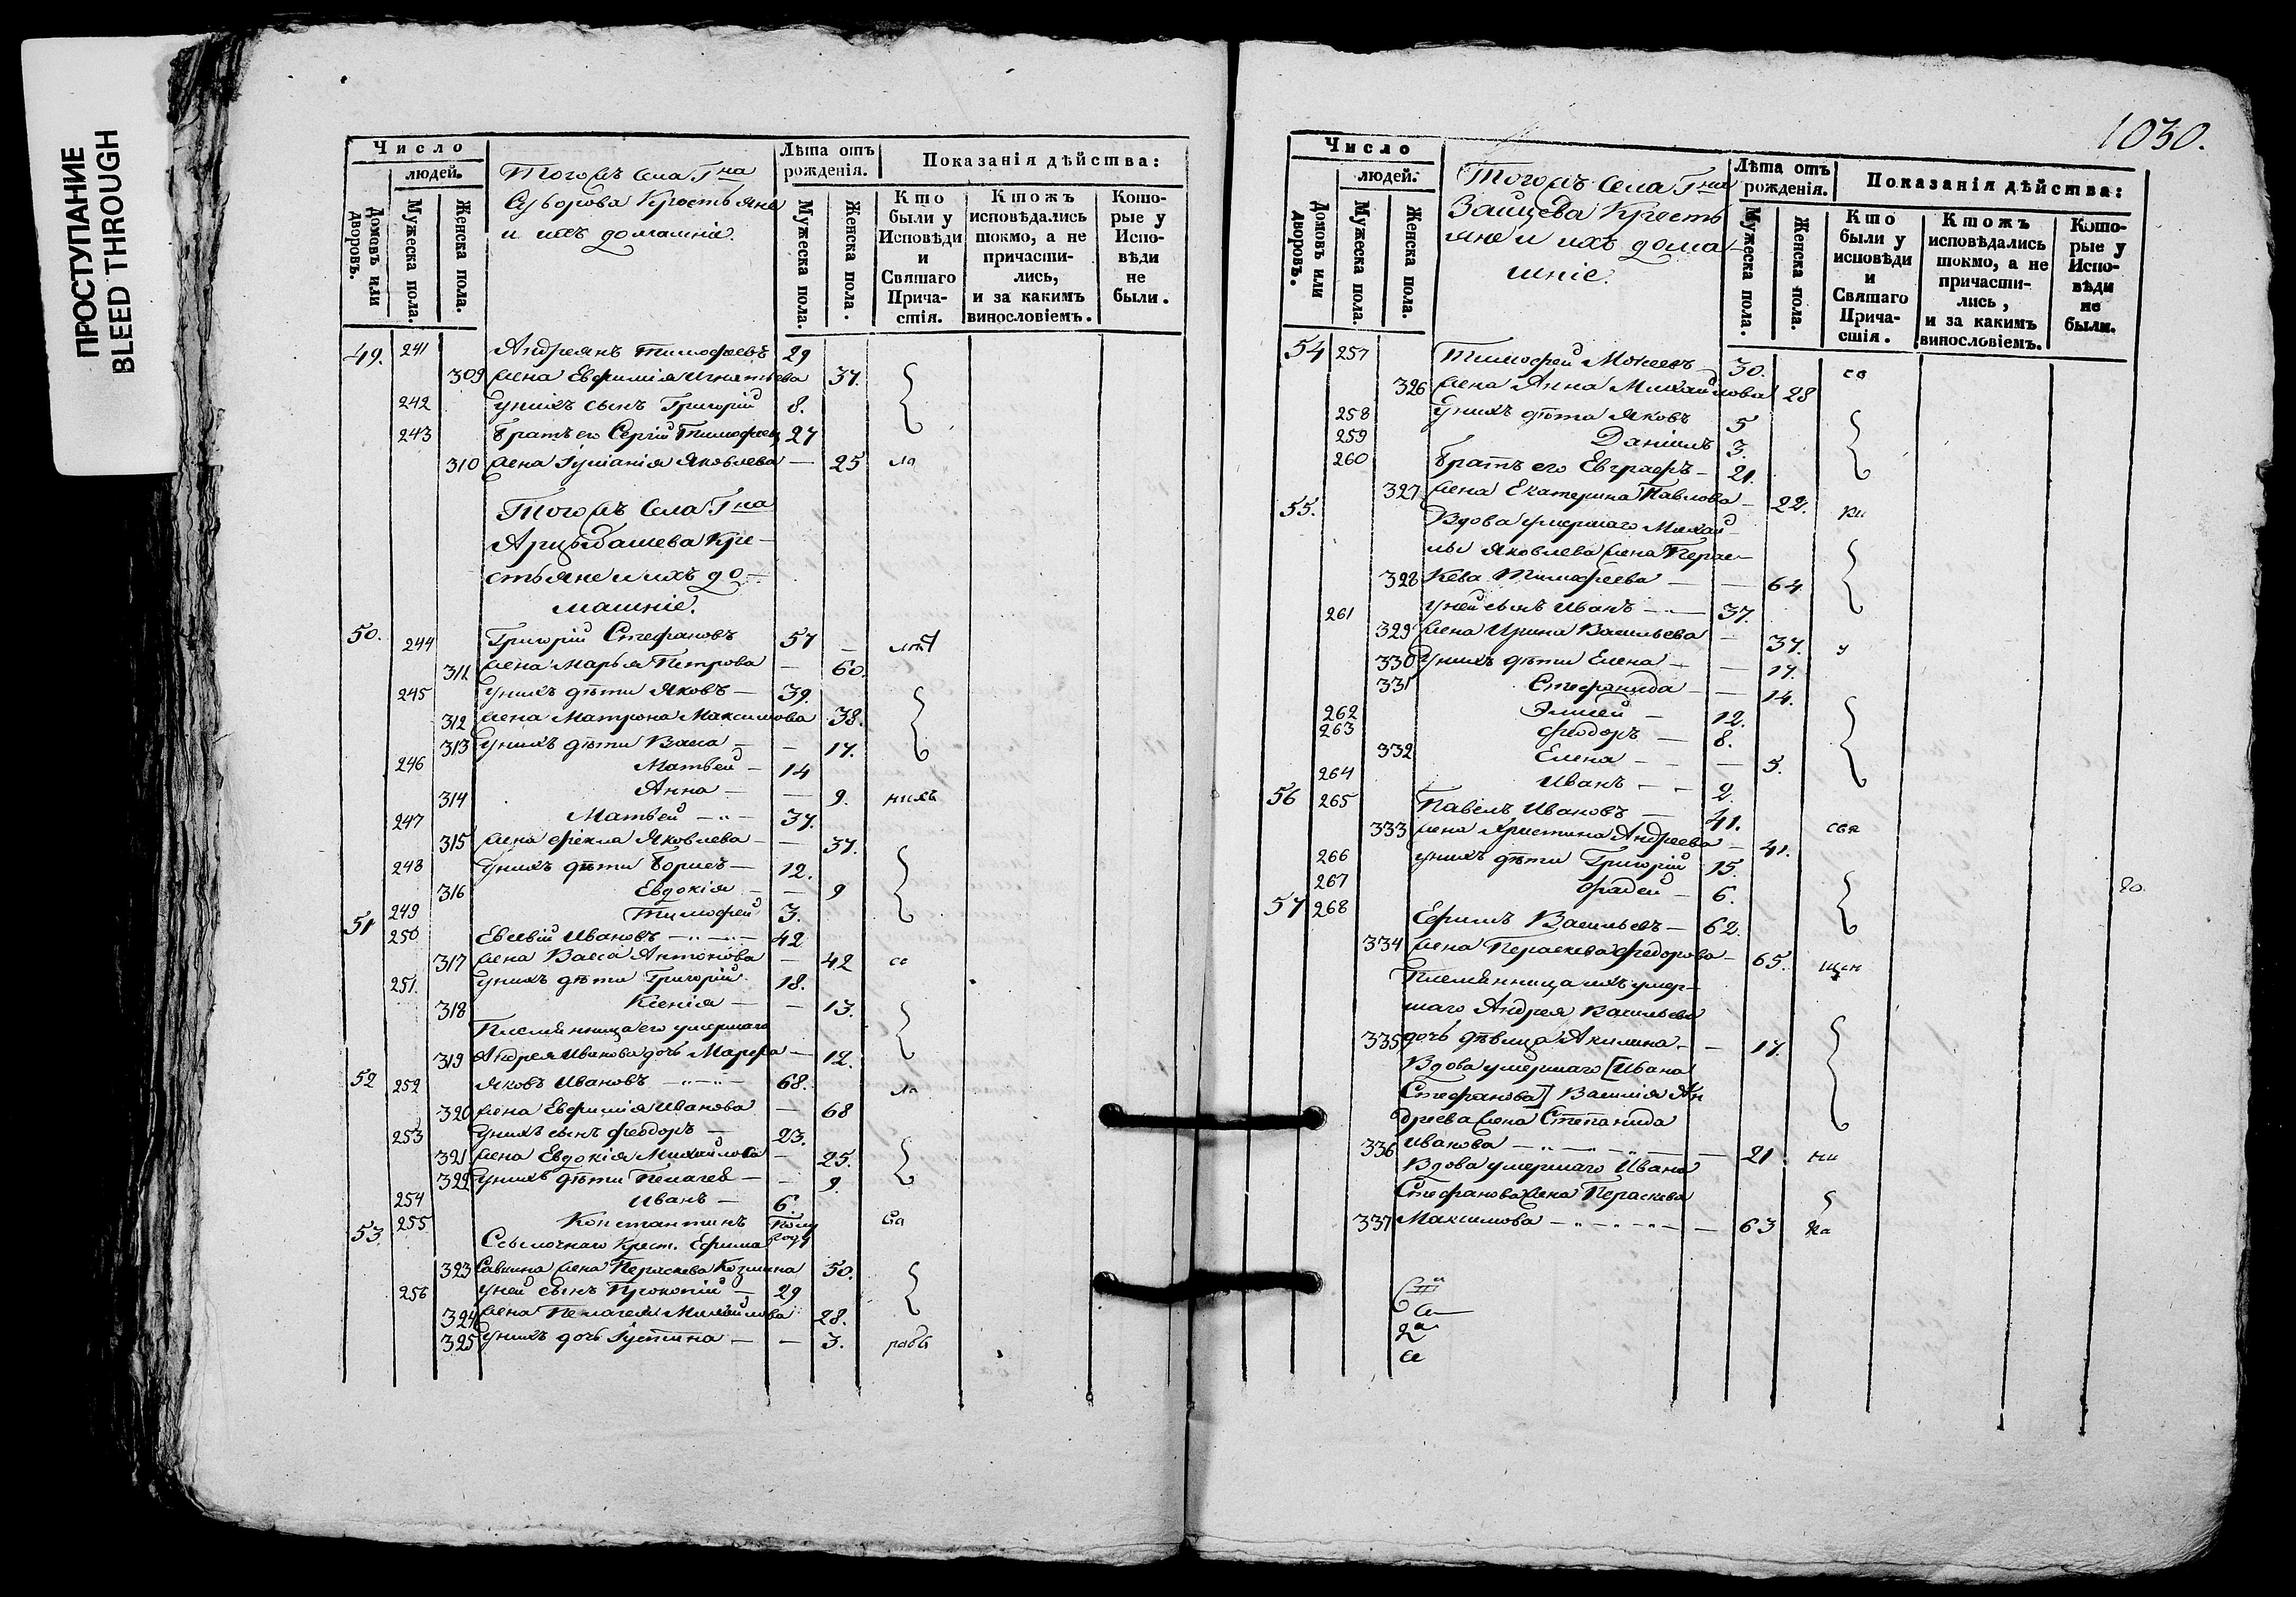 ПРОСТУПАНИЕ
BLEED THROUGH
Число
людей.
Домовъ или дворовъ.
Мужеска пола.
Женска пола.
Тогожъ Села Гна
Суворова Крестьяне
и ихъ домашніе.
Лѣта отъ рожденія.
Мужеска пола.
Женска пола.
Показанія дѣйства:
Кто были у Исповѣди и Святаго Причастія.
Ктожъ исповѣдались токмо, а не причастились, и за какимъ винословіемъ.
Которые у Исповѣди не были.
49. 241 Андреянъ Тимофеевъ 29
309 жена Евфимія Игнатьева 37.
242 у нихъ сынъ Григорій 8.
243 братъ его Сергій Тимофеевъ 27
310 жена Іуліанія Яковлева — 25 ла
Тогожъ Села Гна
Арцыбашева Кре-
стьяне и ихъ до-
машніе.
50. 244 Григорій Стефановъ 57
311 жена Марья Петрова — 60.
245 у нихъ дѣти Яковъ — 39.
312 жена Матрона Максимова 38.
313 у нихъ дѣти Васса — 17.
246 Матвей — 14
314 Анна — 9. нихъ
247 Матвей — 37.
315 жена Фекла Яковлева — 37.
248 у нихъ дѣти Борисъ — 12.
316 Евдокія — 9
249 Тимофей 3.
51 250 Евсевій Ивановъ — 42
317 жена Васса Антонова — 42 се
251. у нихъ дѣти Григорій 18.
318 Ксенія — 13.
Племянница его умершаго
319 Андрея Иванова дочь Марфа — 12.
52 252 Яковъ Ивановъ — 68. ла
320 жена Евфимія Иванова — 68
253 у нихъ сынъ Феодоръ — 23.
321 жена Евдокія Михайлова — 25.
322 у нихъ дѣти Пелагея — 9.
254 Иванъ — 6.
255 Константинъ полу году
53. Ссылочнаго Крест. Ефима
323 Савкина жена Пераскева Козмина 50.
256 у ней сынъ Прокопій — 29
324 жена Пелагея Михайлова 28.
325 у нихъ дочь Іустина — 3.
1030.
Число
людей.
Домовъ или дворовъ.
Мужеска пола.
Женска пола.
Тогожъ Села Гна
Зайцева Кресть
яне и ихъ дома-
шніе.
Лѣта отъ рожденія.
Мужеска пола.
Женска пола.
Показанія дѣйства:
Кто были у исповѣди и Святаго Причастія.
Ктожъ исповѣдались токмо, а не причастились, и за какимъ винословіемъ.
Которые у Исповѣди не были.
54 257 Тимофей Моисеевъ 30. св
326 жена Анна Михайлова 28
258 у нихъ дѣти Яковъ 5
259 Даніилъ 3.
260 братъ его Евграфъ — 21.
327 жена Екатерина Павлова — 22.
55. Вдова умершаго Михай-
лы Яковлева жена Перас-
328 кева Тимофеева — 64
261 у ней сынъ Иванъ — 37.
329 жена Ирина Васильева — 37. у
330 у нихъ дѣти Елена — 17.
331 Стефанида — 14.
262 Элисей — 12.
263 Феодоръ — 8.
332 Елена — 5.
264 Иванъ — 2.
56 265 Павелъ Ивановъ — 41. свя
333 жена Христина Андреева — 41.
266 у нихъ дѣти Григорій 15.
267 Фадей — 6.
57 268 Ефимъ Васильевъ — 62.
334 жена Пераскева Федорова — 65. щен
Племянница ихъ умер-
шаго Андрея Васильева
335 дочь дѣвица Акилина — 17.
Вдова умершаго [Ивана
Стефанова] Василія Ан
дреева жена Степанида
336 Иванова — 21. ни
Вдова умершаго Ивана
Стефанова жена Пераскева
337 Максимова — 63 ка